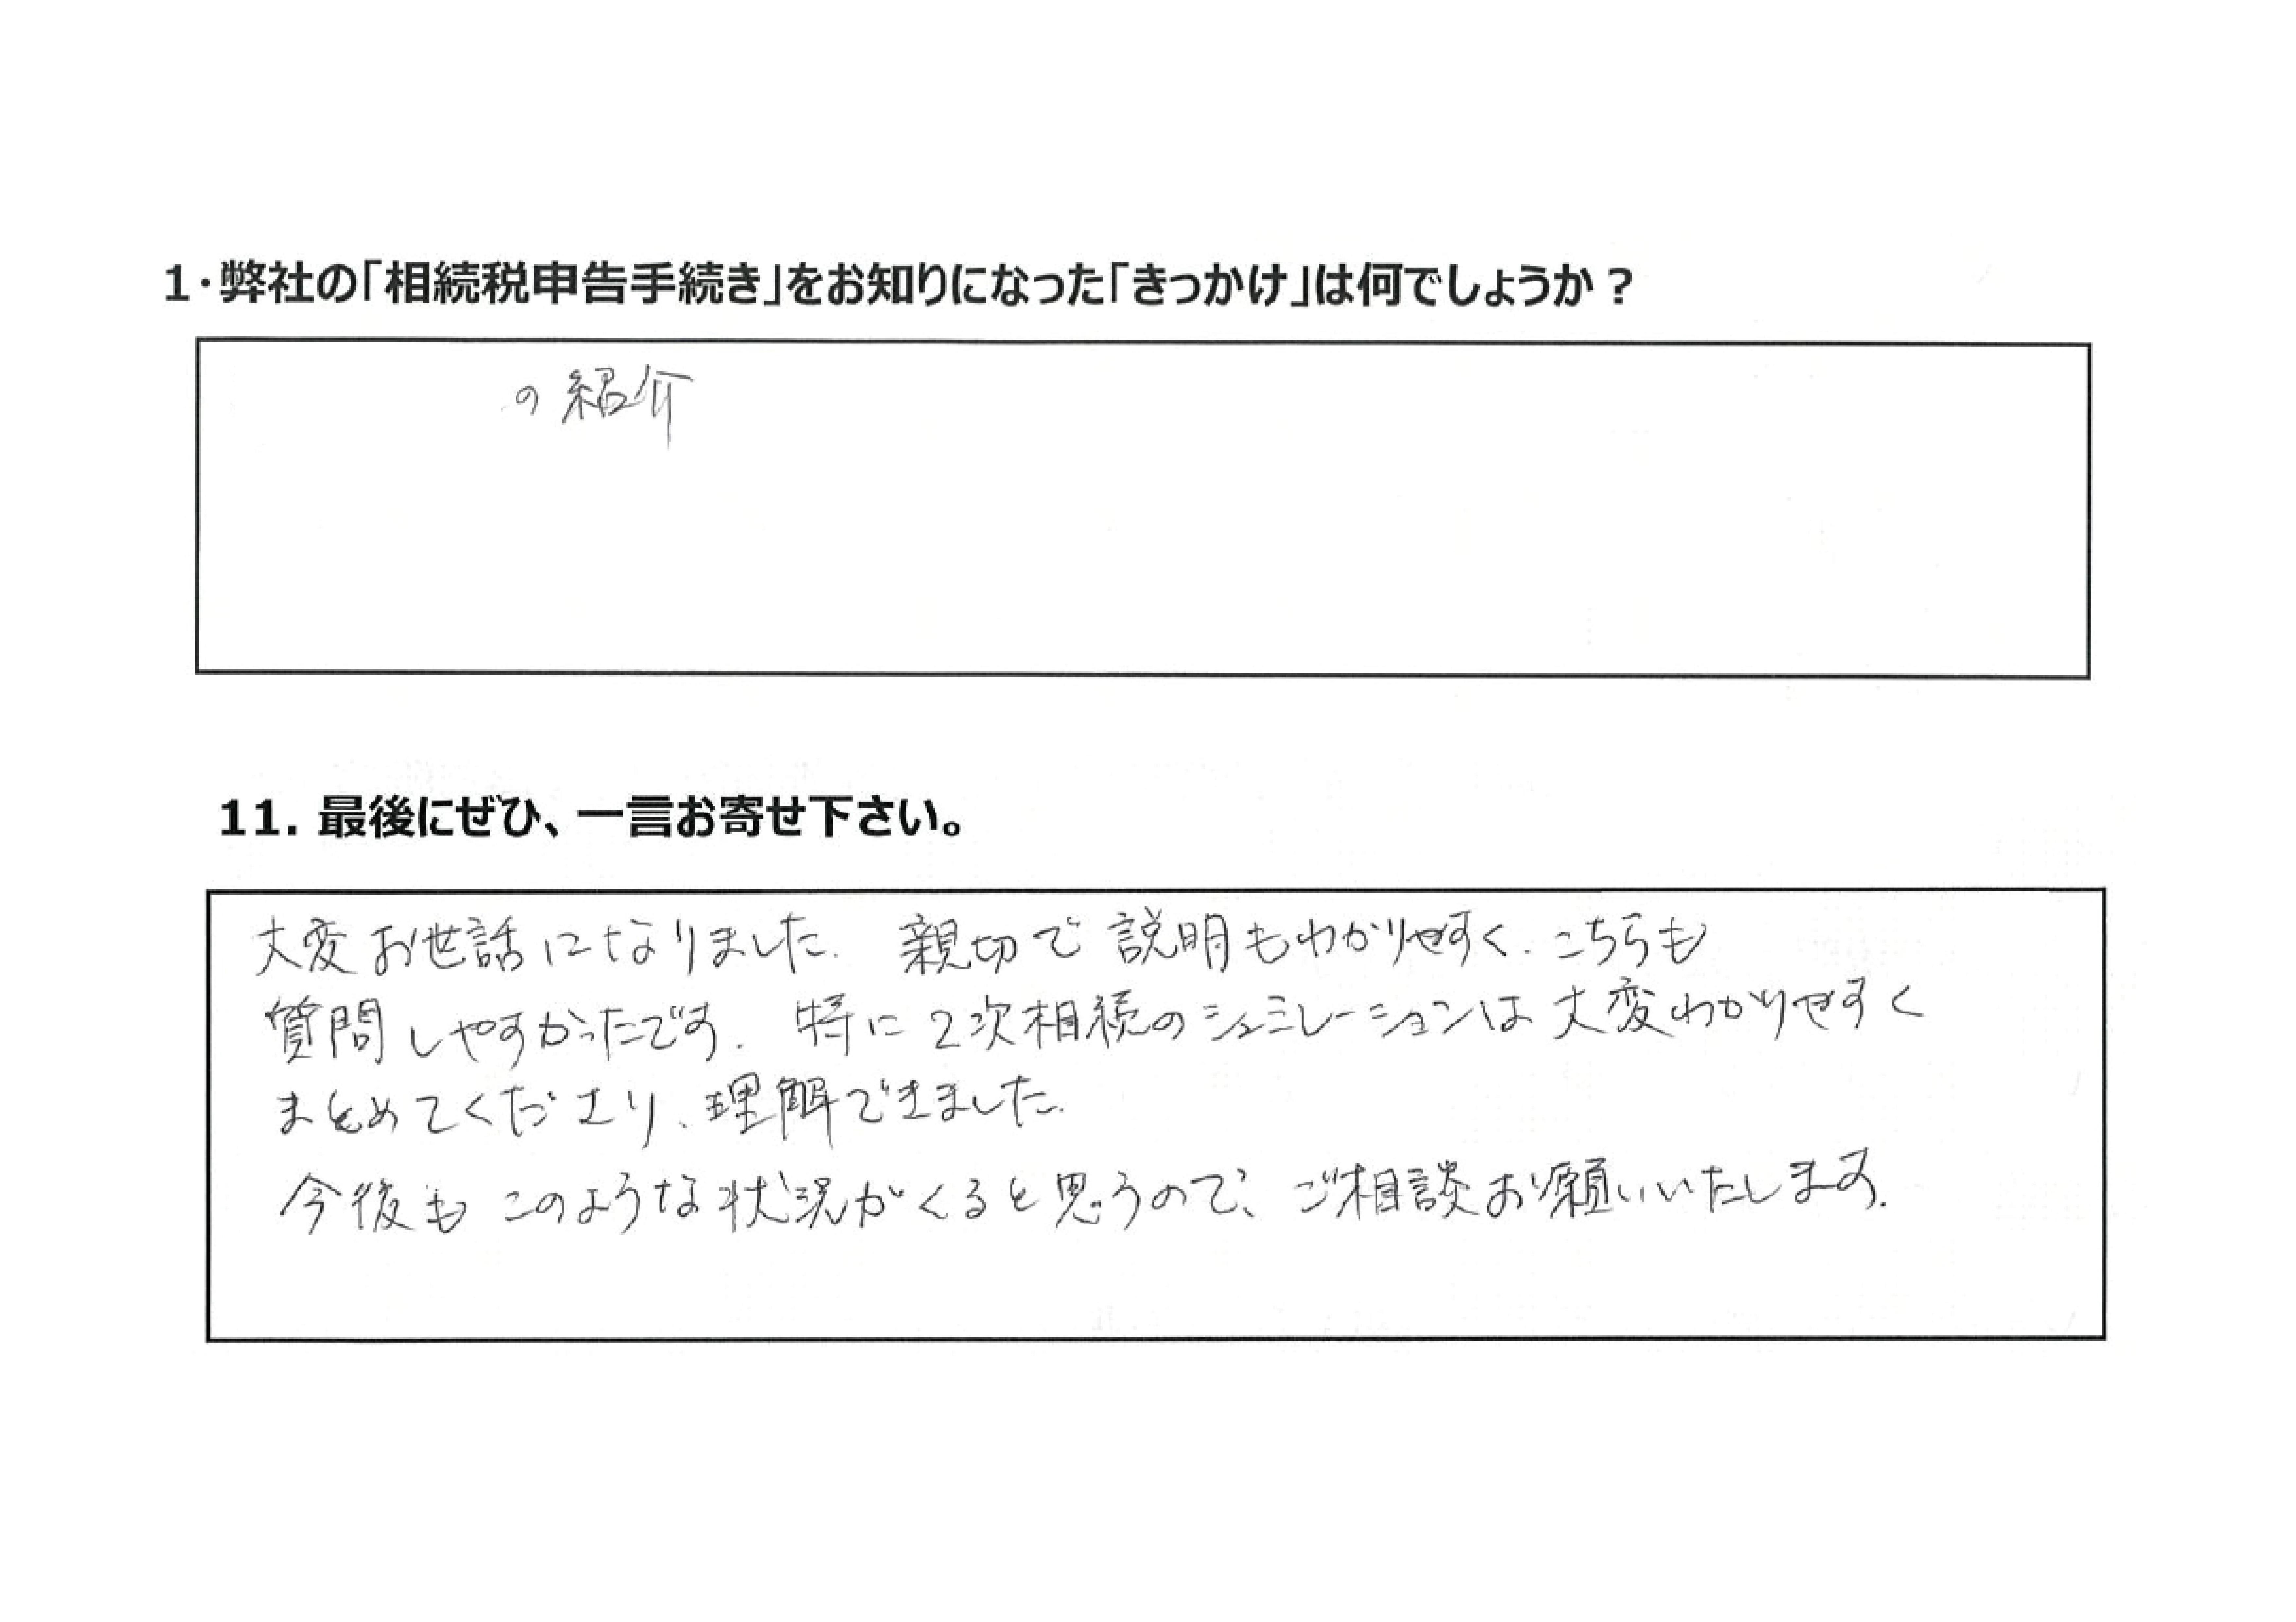 1・弊社の「相続税申告手続き」をお知りになった「きっかけ」は何でしょうか？
の紹介
11. 最後にぜひ、一言お寄せ下さい。
大変お世話になりました. 親切で説明もわかりやすく、こちらも
質問しやすかったです. 特に2次相続のシュミレーションは大変わかりやすく
まとめてくださり、理解できました.
今後もこのような状況がくると思うので、ご相談お願いいたします.